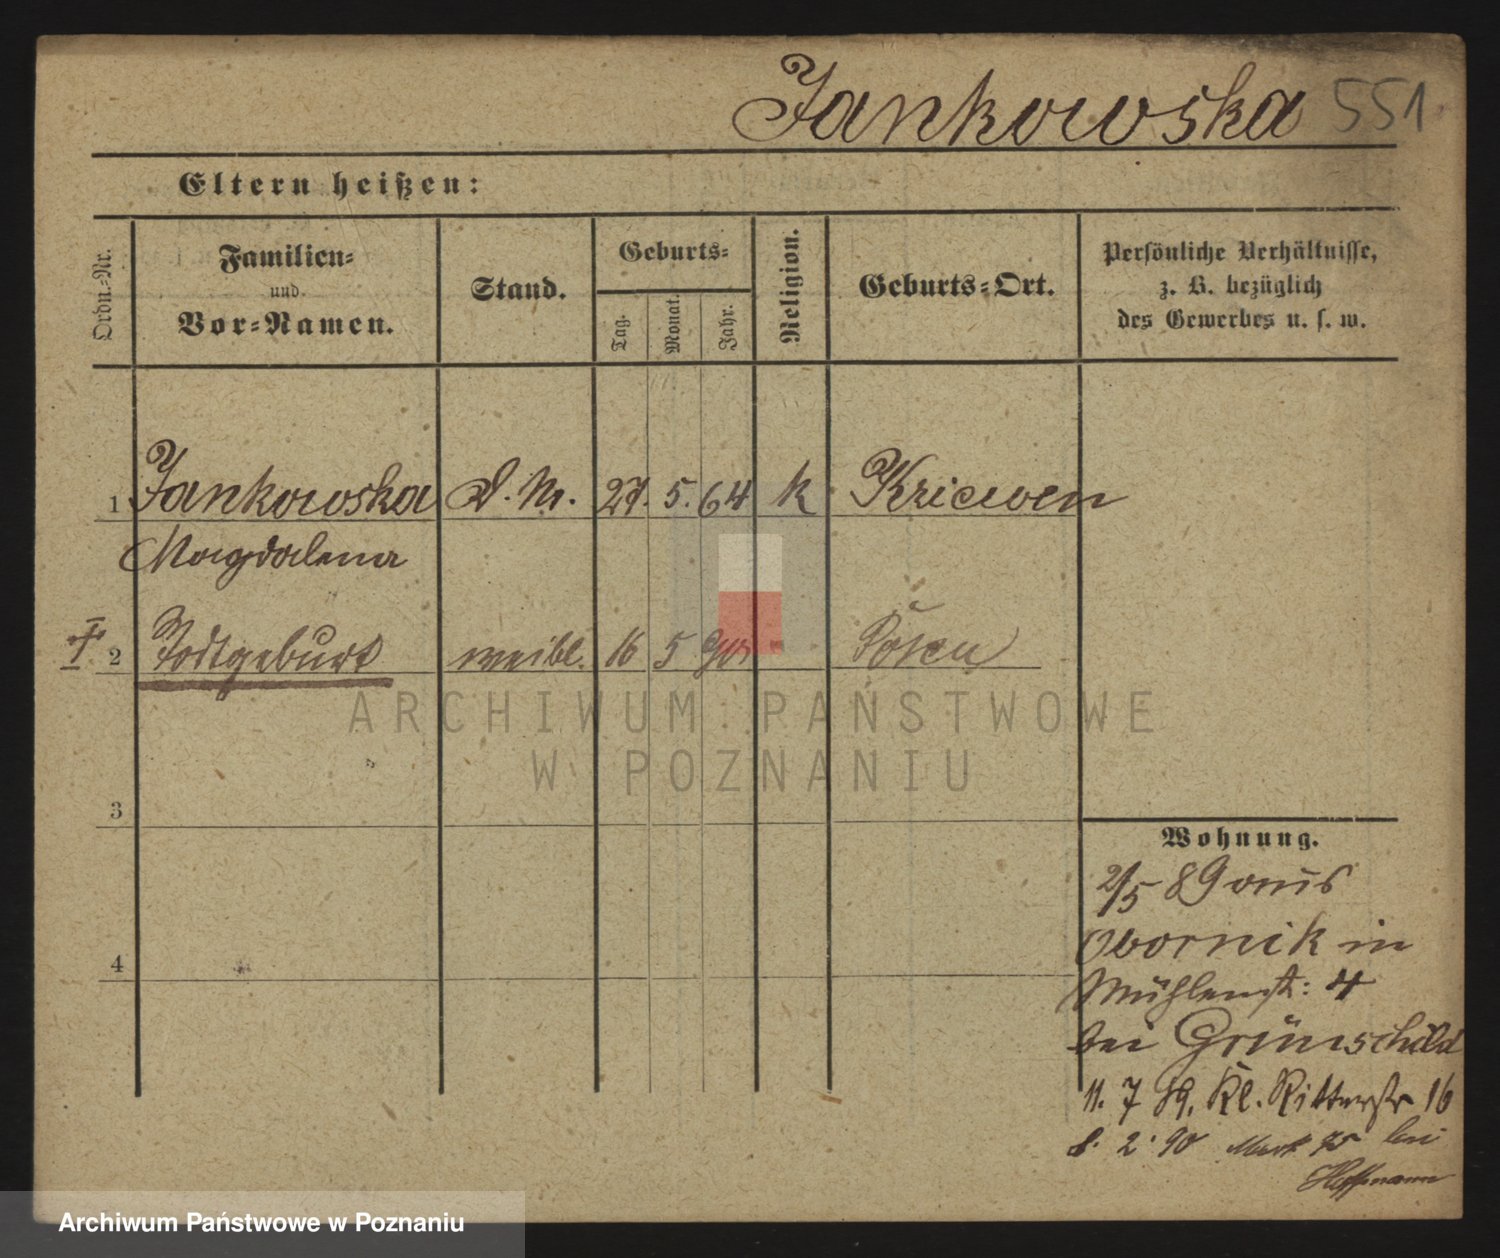 Jankowska 551
Eltern heißen:
Ordn.-Nr.
Familien=
und
Vor=Namen.
Stand.
Geburts=
Tag.
Monat.
Jahr.
Religion.
Geburts=Ort.
Persönliche Verhältnisse,
z. B. bezüglich
des Gewerbes u. s. w.
1 Jankowska D. M. 27. 5. 64 k Kriewen
Magdalena
2 Todtgeburt weibl. 16 5 90 Posen
3
4
Wohnung.
2/5 89 aus
Obornik in
Mühlenstr: 4
bei Grünschild
11. 7 89. Kl. Ritterstr 16
8. 2. 90 Markt 75 bei
Hoffmann
ARCHIWUM PAŃSTWOWE
W POZNANIU
Archiwum Państwowe w Poznaniu